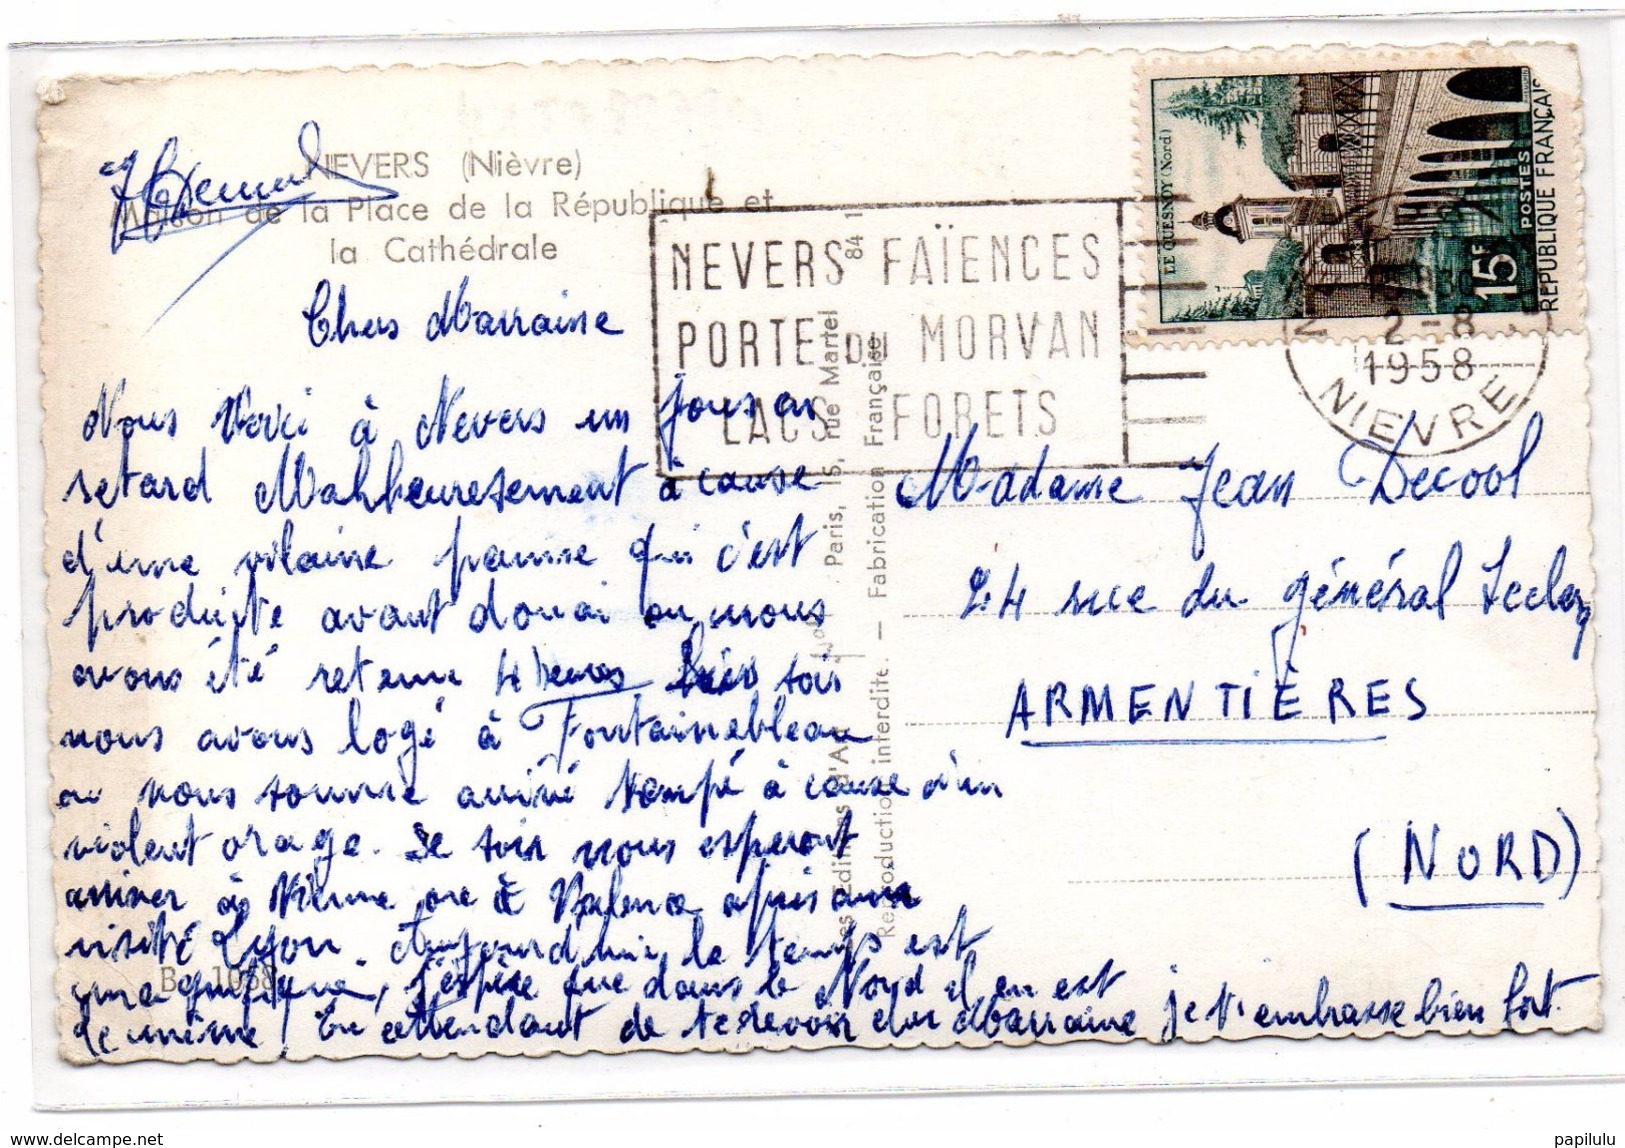 NEVERS (Nièvre)
Maison de la Place de la République et
la Cathédrale
Chers Marraine
Nous voici à Nevers un jours en
retard Malheuresement à cause
d'une vilaine panne qui c'est
produite avant douai ou nous
avons été retenu 4 heures hier soir
nous avons logé à Fontainebleau
ou nous somme arrivé trempé à cause d'un
violent orage. Se soir nous esperont
arriver à Vienne ou à Valence après avoir
visité Lyon. Aujourd'hui le temps est
magnifique, j'espère que dans le Nord il en est
de même, En attendant de te revoir cher Marraine je t'embrasse bien fort.
Be 1058
Les Editions d'Art Yvon Paris, 15, rue Martel 84 1
Reproduction interdite. — Fabrication Française
NEVERS FAÏENCES
PORTE DU MORVAN
LACS FORETS
LE QUESNOY (Nord)
15F
POSTES
REPUBLIQUE FRANÇAISE
2-8
1958
NIEVRE
Madame Jean Decool
24 rue du général Leclerc
ARMENTIÈRES
(NORD)
www.delcampe.net
papilulu